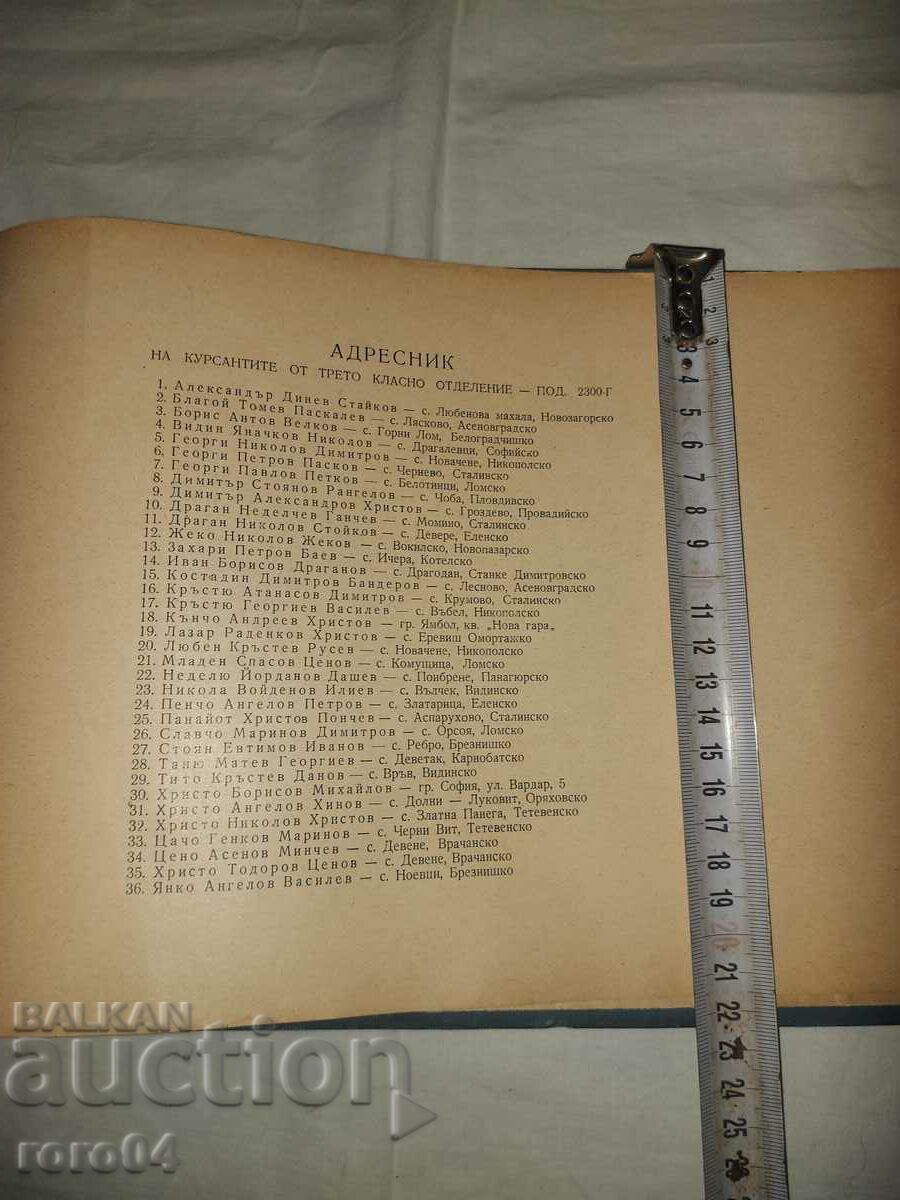 АДРЕСНИК
НА КУРСАНТИТЕ ОТ ТРЕТО КЛАСНО ОТДЕЛЕНИЕ — ПОД. 2300-Г
1. Александър Динев Стайков — с. Любенова махала, Новозагорско
2. Благой Томев Паскалев — с. Лясково, Асеновградско
3. Борис Антов Велков — с. Горни Лом, Белоградчишко
4. Видин Яначков Николов — с. Драгалевци, Софийско
5. Георги Николов Димитров — с. Новачене, Никополско
6. Георги Петров Пасков — с. Чернево, Сталинско
7. Георги Павлов Петков — с. Белотинци, Ломско
8. Димитър Стоянов Рангелов — с. Чоба, Пловдивско
9. Димитър Александров Христов — с. Гроздево, Провадийско
10. Драган Неделчев Ганчев — с. Момино, Сталинско
11. Драган Николов Стойков — с. Девере, Еленско
12. Жеко Николов Жеков — с. Вокилско, Новопазарско
13. Захари Петров Баев — с. Ичера, Котелско
14. Иван Борисов Драганов — с. Драгодан, Станке Димитровско
15. Костадин Димитров Бандеров — с. Лесново, Асеновградско
16. Кръстю Атанасов Димитров — с. Крумово, Сталинско
17. Кръстю Георгиев Василев — с. Въбел, Никополско
18. Кънчо Андреев Христов — гр. Ямбол, кв. „Нова гара"
19. Лазар Раденков Христов — с. Еревиш Омортажко
20. Любен Кръстев Русев — с. Новачене, Никополско
21. Младен Спасов Ценов — с. Комущица, Ломско
22. Неделю Йорданов Дашев — с. Поибрене, Панагюрско
23. Никола Войденов Илиев — с. Вълчек, Видинско
24. Пенчо Ангелов Петров — с. Златарица, Еленско
25. Панайот Христов Пончев — с. Аспарухово, Сталинско
26. Славчо Маринов Димитров — с. Орсоя, Ломско
27. Стоян Евтимов Иванов — с. Ребро, Брезнишко
28. Таню Матев Георгиев — с. Деветак, Карнобатско
29. Тито Кръстев Данов — с. Връв, Видинско
30. Христо Борисов Михайлов — гр. София, ул. Вардар, 5
31. Христо Ангелов Хинов — с. Долни — Луковит, Оряховско
32. Христо Николов Христов — с. Златна Панега, Тетевенско
33. Цачо Генков Маринов — с. Черни Вит, Тетевенско
34. Цено Асенов Минчев — с. Девене, Врачанско
35. Христо Тодоров Ценов — с. Девене, Врачанско
36. Янко Ангелов Василев — с. Ноевци, Брезнишко
1
2
3
3
4
5
6
7
8
9
10
11
12
13
14
15
16
17
18
19
20
21
22
23
24
25
26
BALKAN
auction
roro04